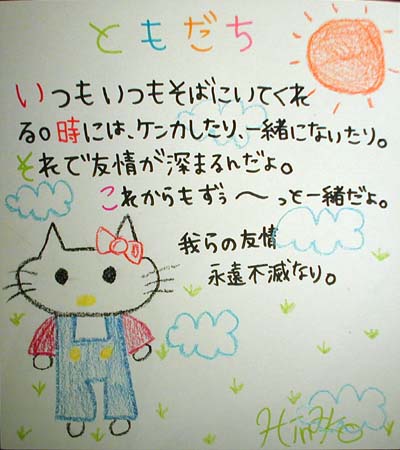 ともだち
いつもいつもそばにいてくれ
る。時には、ケンカしたり、一緒にないたり。
それで友情が深まるんだよ。
これからもずぅ〜っと一緒だよ。
我らの友情
永遠不滅なり。